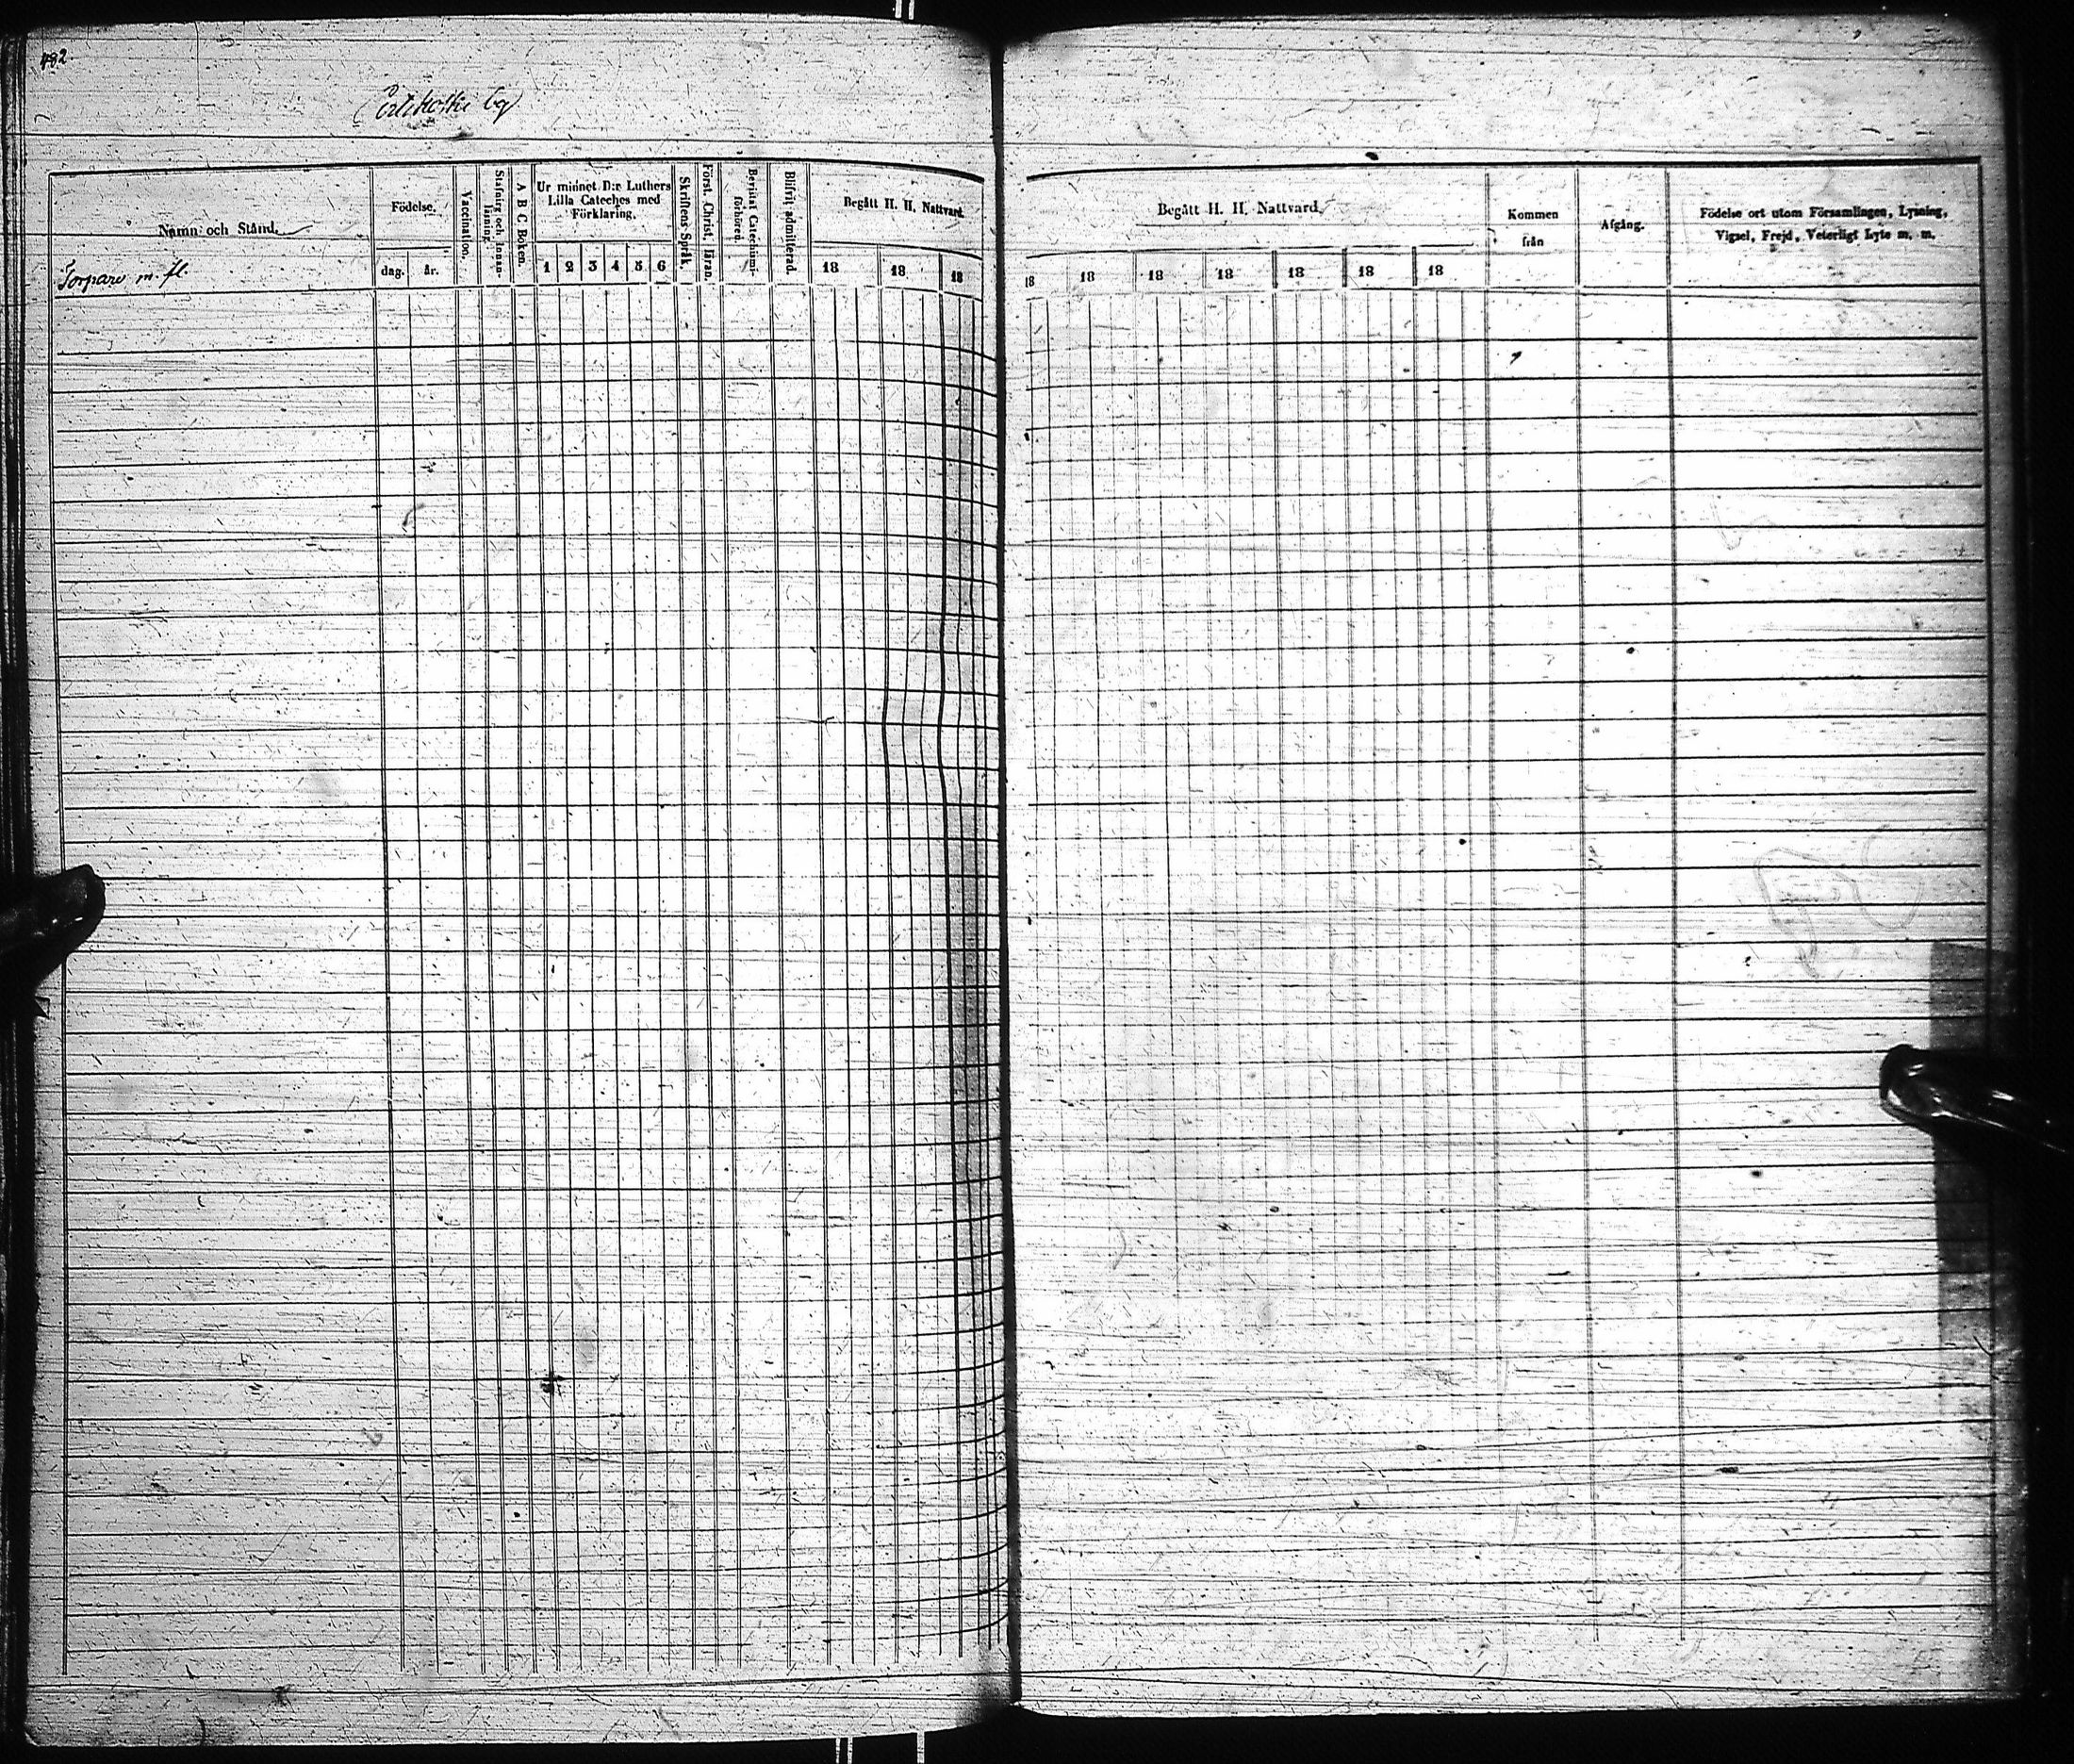 482
by
Namn och Stånd.
Torpare m. fl.
Födelse.
dag. år.
Vaccination.
Stafning och Innanläsning.
A B C Boken.
Ur minnet D:r Luthers
Lilla Cateches med
Förklaring.
1 2 3 4 5 6
Skriftens Språk.
Först. Christ. läran.
Bevistat Catechismi-
förhören.
Blifvit admitterad.
Begått H. H. Nattvard.
18 18 18
Begått H. H. Nattvard.
18 18 18 18 18 18 18
Kommen
från
Afgång.
Födelse ort utom Församlingen, Lysning,
Vigsel, Frejd, Veterligt Lyte m. m.